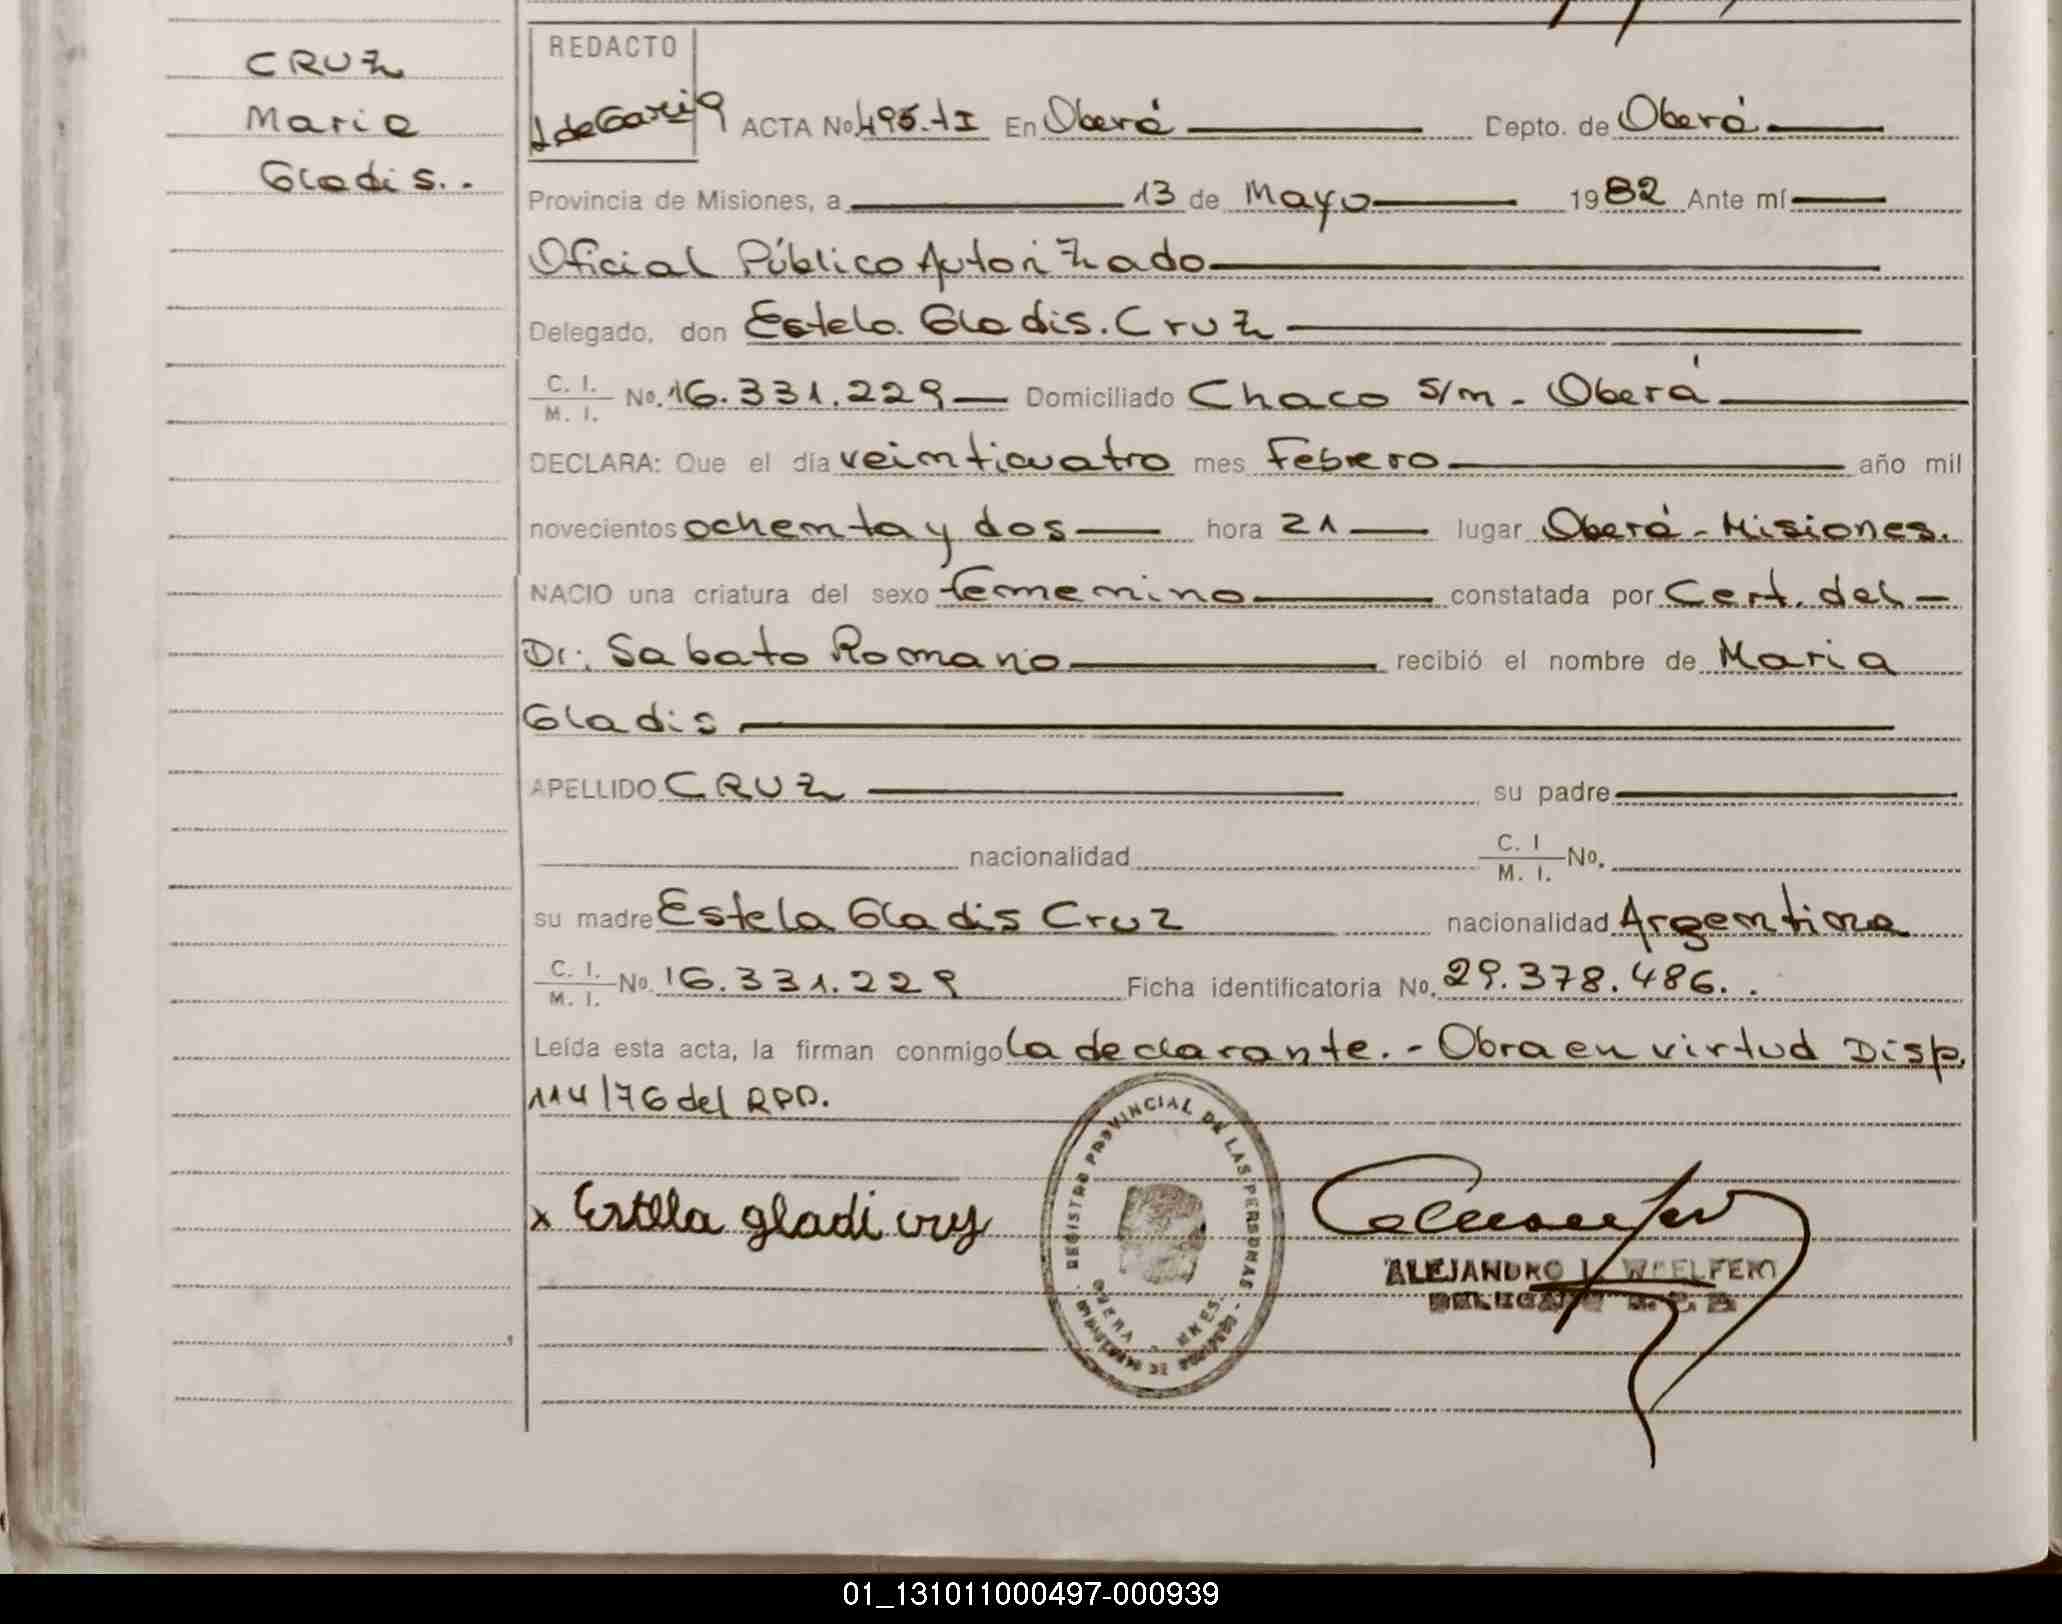 CRUZ
Maria
Gladis..
REDACTO
ACTA No 495. tI En Oberá Depto. de Oberá
Provincia de Misiones, a 13 de Mayo 1982 Ante mí
Oficial Público Autorizado
Delegado, don Estela Gladis. Cruz
C. I. M. I. No. 16.331.229 Domiciliado Chaco s/n - Oberá
DECLARA: Que el día veinticuatro mes Febrero año mil
novecientos ochenta y dos hora 21 lugar Oberá - Misiones.
NACIO una criatura del sexo femenino constatada por Cert. del
Dr: Sabato Romano recibió el nombre de Maria
Gladis
APELLIDO CRUZ su padre
nacionalidad C. I M. I. No.
su madre Estela Gladis Cruz nacionalidad Argentina
C. I. M. I. No. 16.331.229 Ficha identificatoria No. 29.378.486. .
Leída esta acta, la firman conmigo la declarante. - Obra en virtud Disp.
114/76 del RPP.
REGISTRO PROVINCIAL DE LAS PERSONAS
OBERA - MNES.
x Estella gladi cruz
ALEJANDRO
DELEGADO
01_131011000497-000939